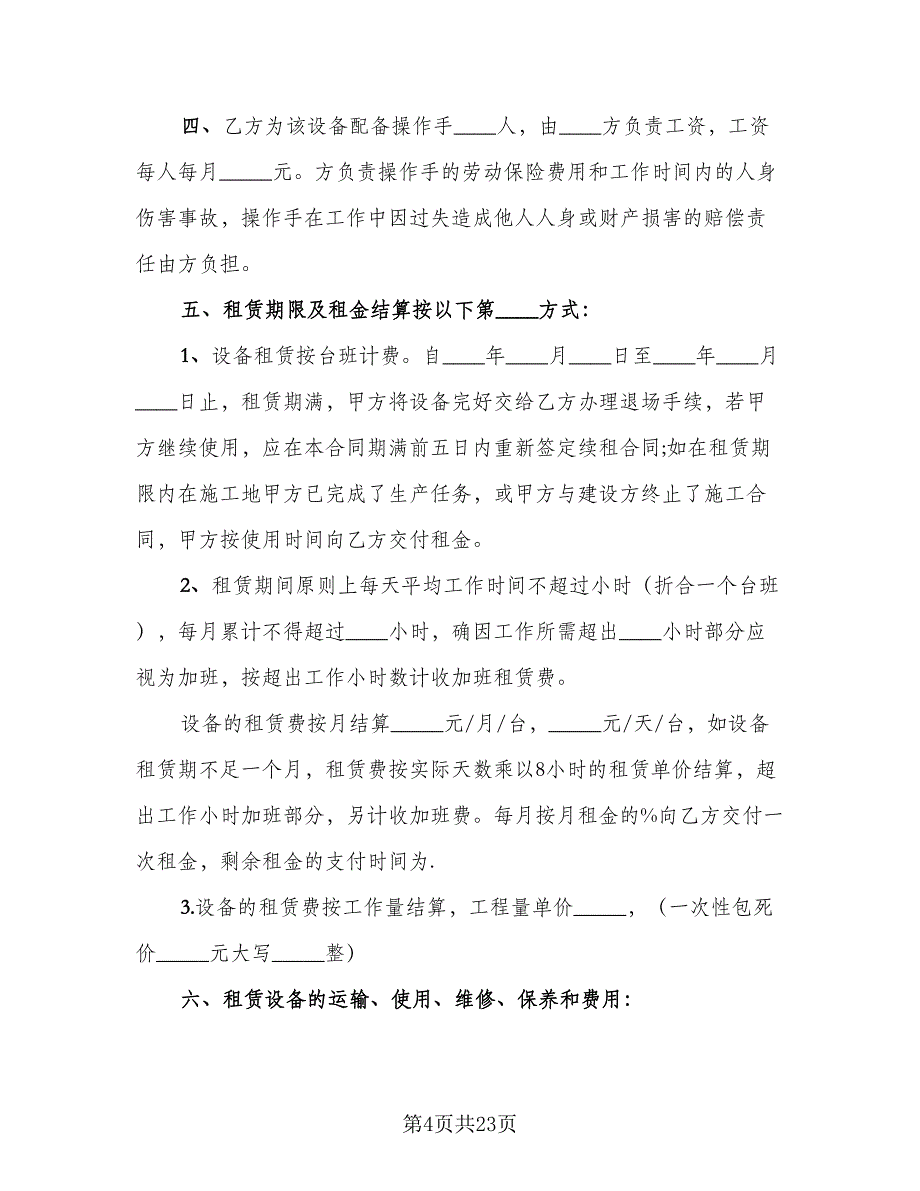 四、乙方为该设备配备操作手____人，由____方负责工资，工资
每人每月_____元。方负责操作手的劳动保险费用和工作时间内的人身
伤害事故，操作手在工作中因过失造成他人人身或财产损害的赔偿责
任由方负担。
五、租赁期限及租金结算按以下第____方式：
1、设备租赁按台班计费。自____年____月____日至____年____月
____日止，租赁期满，甲方将设备完好交给乙方办理退场手续，若甲
方继续使用，应在本合同期满前五日内重新签定续租合同;如在租赁期
限内在施工地甲方已完成了生产任务，或甲方与建设方终止了施工合
同，甲方按使用时间向乙方交付租金。
2、租赁期间原则上每天平均工作时间不超过小时（折合一个台班
），每月累计不得超过____小时，确因工作所需超出____小时部分应
视为加班，按超出工作小时数计收加班租赁费。
设备的租赁费按月结算_____元/月/台，_____元/天/台，如设备
租赁期不足一个月，租赁费按实际天数乘以8小时的租赁单价结算，超
出工作小时加班部分，另计收加班费。每月按月租金的%向乙方交付一
次租金，剩余租金的支付时间为.
3.设备的租赁费按工作量结算，工程量单价_____，（一次性包死
价_____元大写_____整）
六、租赁设备的运输、使用、维修、保养和费用：
第4页共23页